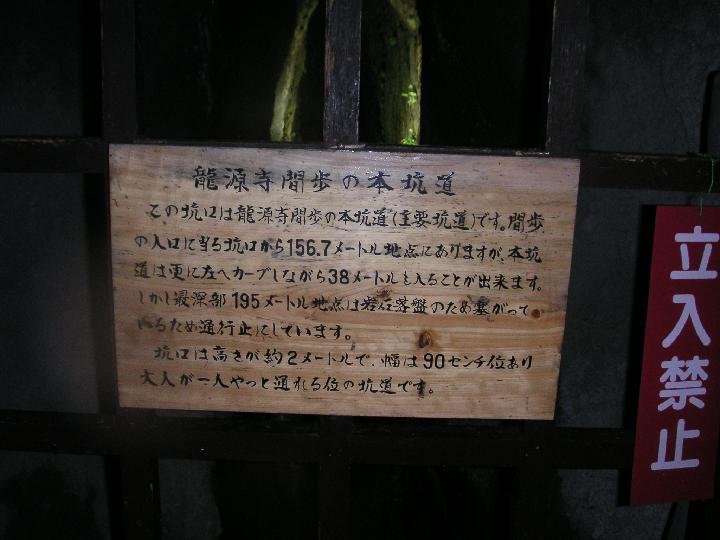 龍源寺間歩の本坑道
この坑口は龍源寺間歩の本坑道(主要坑道)です。間歩
の入口に当る坑口から156.7メートル地点にありますが、本坑
道は更に左へカーブしながら38メートルも入ることが出来ます。
しかし最深部195メートル地点は岩石落盤のため塞がって
いるため通行止にしています。
坑口は高さが約2メートルで、幅は90センチ位あり
大人が一人やっと通れる位の坑道です。
立入禁止